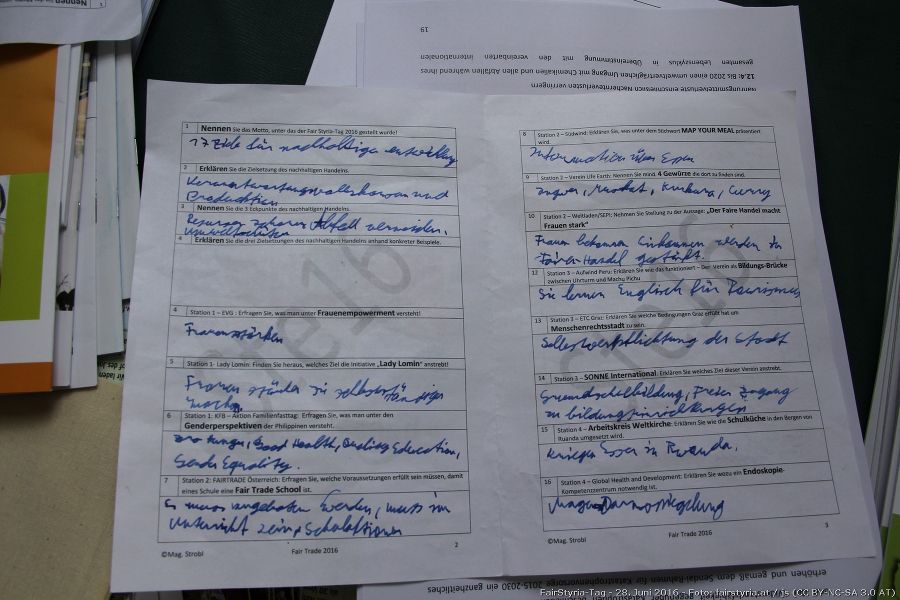 19
gesamten Lebenszyklus in Übereinstimmung mit den vereinbarten internationalen
12.4: Bis 2020 einen umweltverträglichen Umgang mit Chemikalien und allen Abfällen während ihres
Nahrungsmittelverluste einschliesslich Nachernteverlusten verringern
1 Nennen Sie das Motto, unter das der Fair Styria-Tag 2016 gestellt wurde!
17 Ziele für nachhaltige entwicklung
2 Erklären Sie die Zielsetzung des nachhaltigen Handelns.
und
Produktion
3 Nennen Sie die 3 Eckpunkte des nachhaltigen Handelns.
Abfall vermeiden,
4 Erklären Sie die drei Zielsetzungen des nachhaltigen Handelns anhand konkreter Beispiele.
4 Station 1 – EVG : Erfragen Sie, was man unter Frauenempowerment versteht!
Frauen stärken
5 Station 1- Lady Lomin: Finden Sie heraus, welches Ziel die Initiative „Lady Lomin" anstrebt!
Frauen
6 Station 1: KFB – Aktion Familienfasttag: Erfragen Sie, was man unter den
Genderperspektiven der Philippinen versteht.
zero hunger, Good Health, Quality Education,
Gender Equality.
7 Station 2: FAIRTRADE Österreich: Erfragen Sie, welche Voraussetzungen erfüllt sein müssen, damit
eines Schule eine Fair Trade School ist.
Es muss angeboten werden, muss im
Unterricht sein, Schulaktionen
©Mag. Strobl
Fair Trade 2016
2
8 Station 2 – Südwind: Erklären Sie, was unter dem Stichwort MAP YOUR MEAL präsentiert
wird.
Information über Essen
9 Station 2 – Verein Life Earth: Nennen Sie mind. 4 Gewürze die dort zu finden sind.
Ingwer, Muskat, Kurkuma, Curry
10 Station 2 – Weltladen/SEPI: Nehmen Sie Stellung zu der Aussage: „Der Faire Handel macht
Frauen stark"
Frauen bekommen Einkommen werden im
Fairen Handel gestärkt.
12 Station 3 – Aufwind Peru: Erklären Sie wie das funktioniert – Den Verein als Bildungs-Brücke
zwischen Uhrturm und Machu Pichu
Sie lernen Englisch für Tourismus
13 Station 3 – ETC Graz: Erklären Sie welche Bedingungen Graz erfüllt hat um
Menschenrechtsstadt zu sein.
Selbstverpflichtung der Stadt
14 Station 3 – SONNE International. Erklären Sie welches Ziel dieser Verein anstrebt.
Grundschulbildung, Freier Zugang
zu bildungseinrichtungen
15 Station 4 – Arbeitskreis Weltkirche: Erklären Sie wie die Schulküche in den Bergen von
Ruanda umgesetzt wird.
kriegen Essen in Ruanda.
16 Station 4 – Global Health and Development: Erklären Sie wozu ein Endoskopie-
Kompetenzzentrum notwendig ist.
Magen Darmspiegelung
©Mag. Strobl
Fair Trade 2016
3
FairStyria-Tag - 28. Juni 2016 - Foto: fairstyria.at / js (CC BY-NC-SA 3.0 AT)